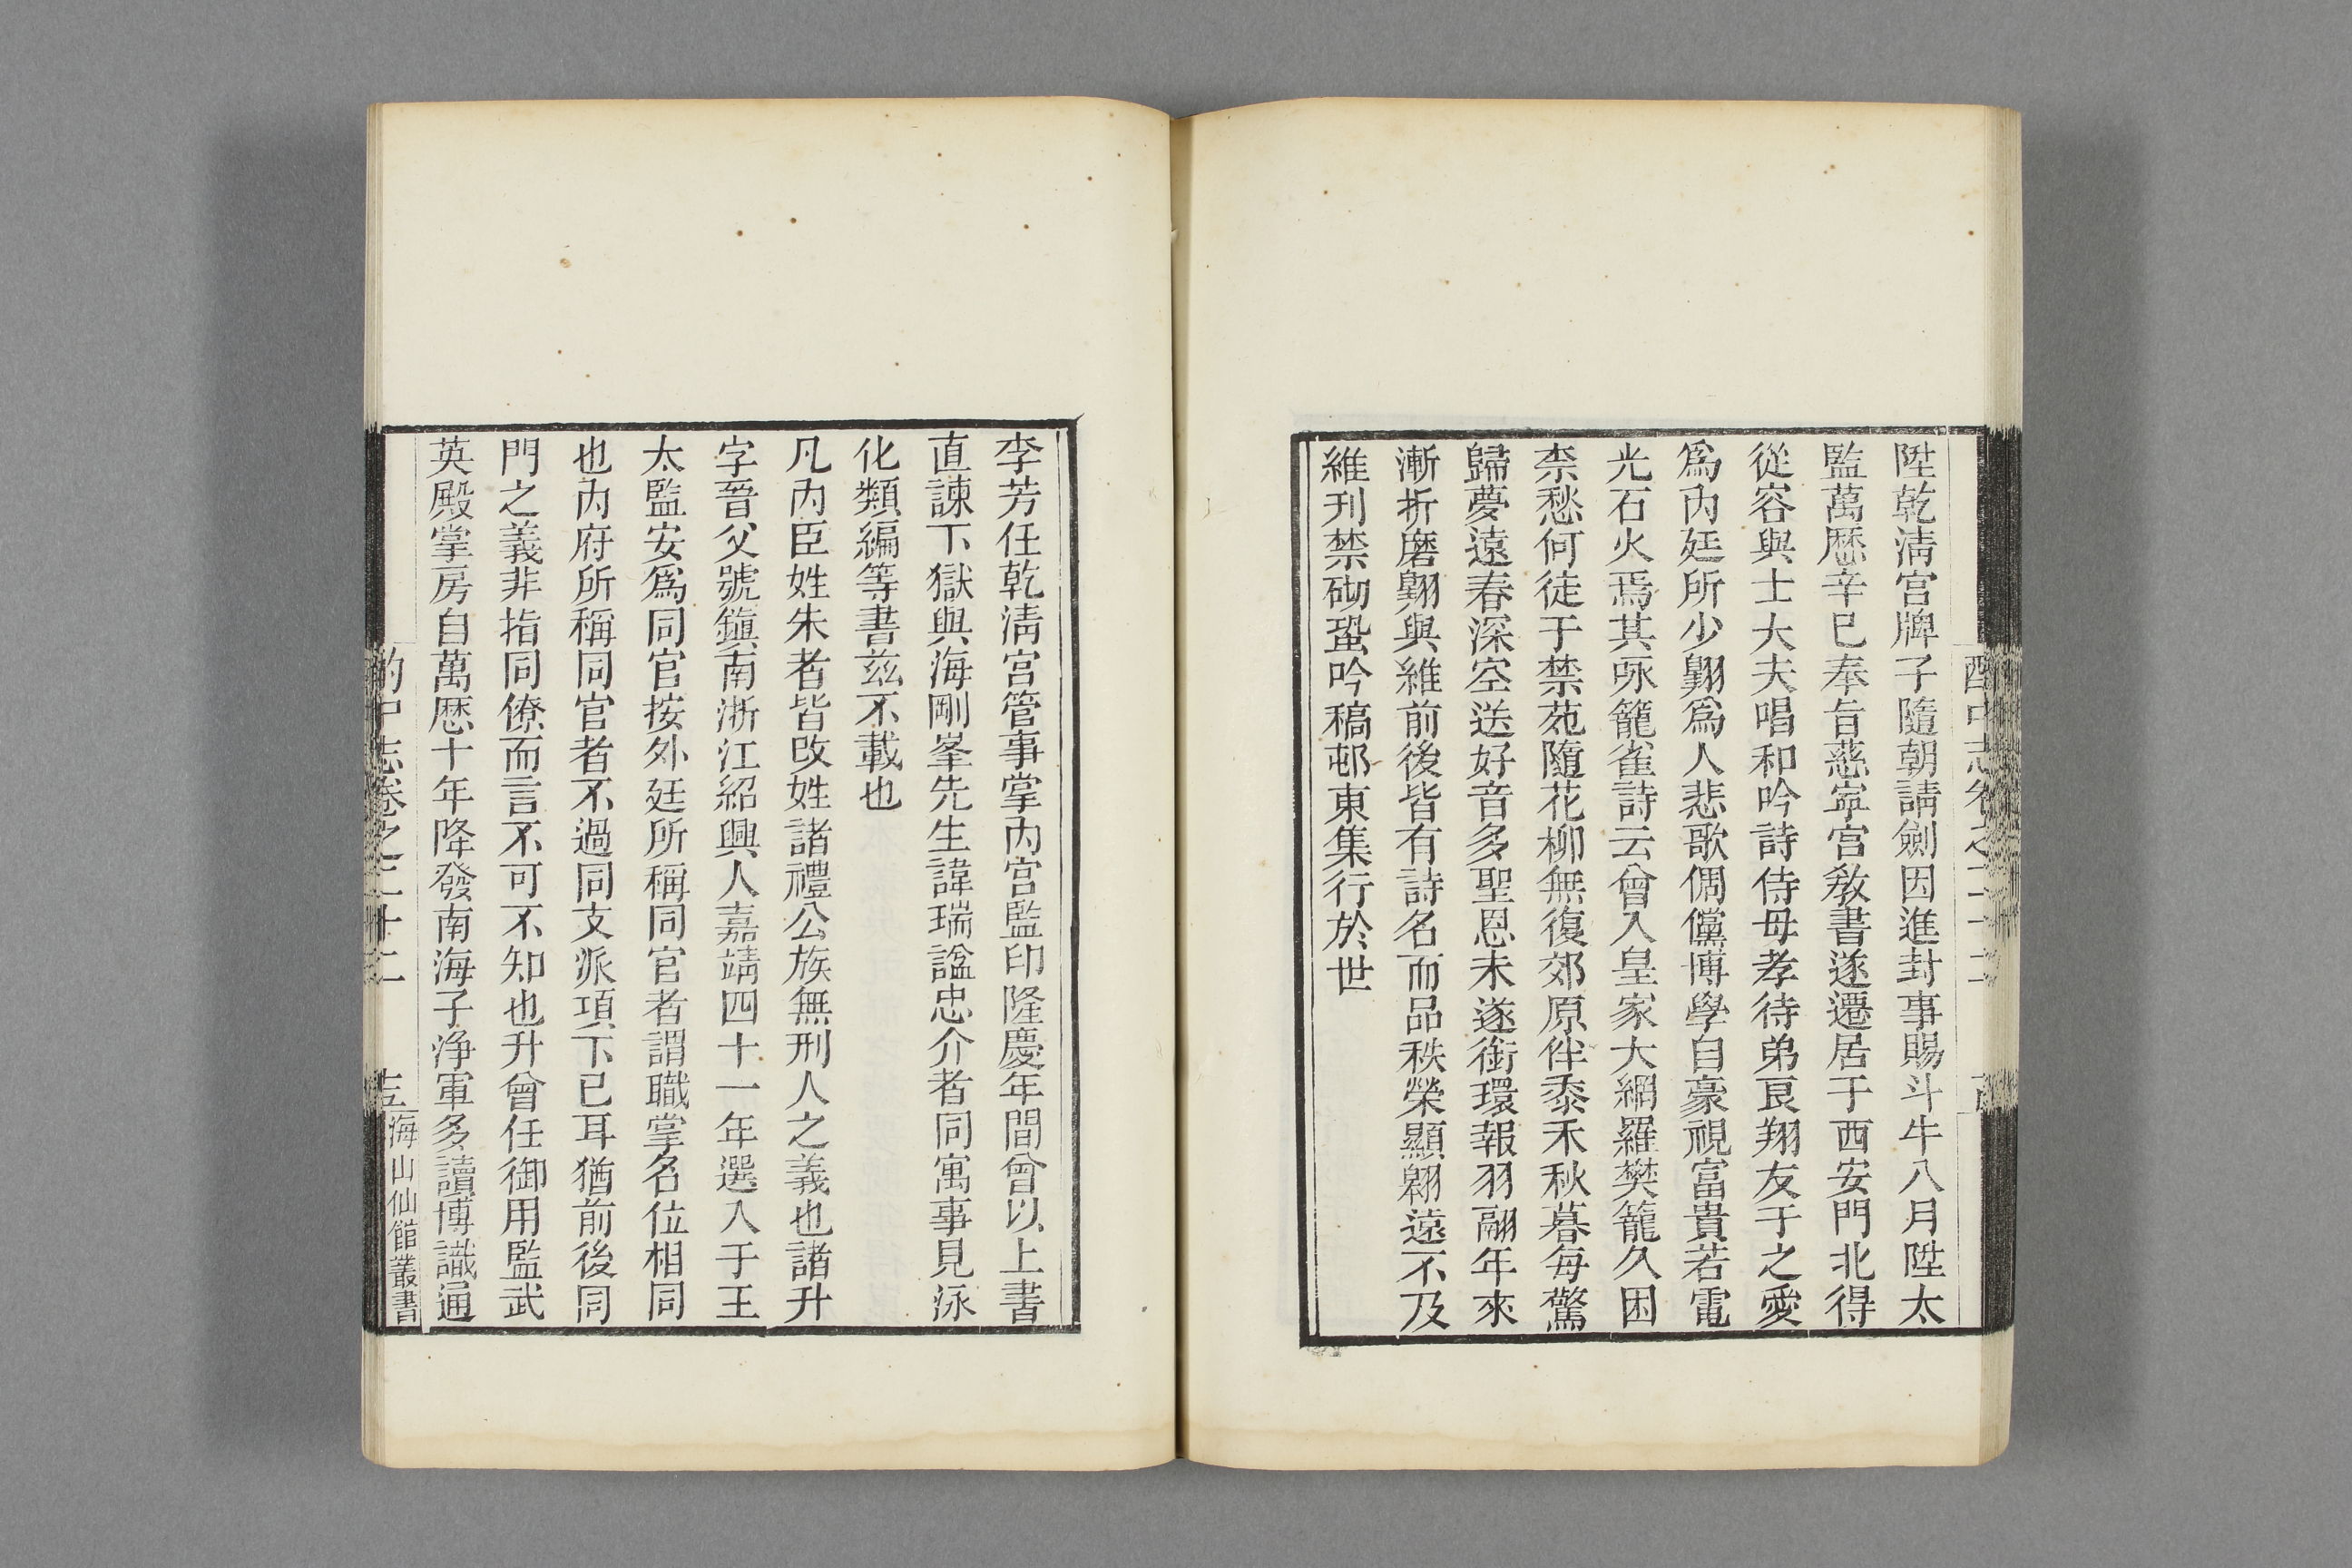 陞乾淸宮牌子隨朝請劍因進封事賜斗牛八月陞太
監萬厯辛巳奉旨慈寧宮敎書遂遷居于西安門北得
從容與士大夫唱和吟詩侍母孝待弟良翔友于之愛
爲內廷所少翺爲人悲歌倜儻博學自豪視富貴若電
光石火焉其詠籠雀詩云曾入皇家大網羅樊籠久困
柰愁何徒于禁苑隨花柳無復郊原伴黍禾秋暮每驚
歸夢遠春深空送好音多聖恩未遂銜環報羽翮年來
漸折磨翺與維前後皆有詩名而品秩榮顯翺遠不及
維刊禁砌蛩吟稿邨東集行於世
李芳任乾淸宮管事掌內宮監印隆慶年間曾以上書
直諫下獄與海剛峯先生諱瑞諡忠介者同寓事見泳
化類編等書茲不載也
凡內臣姓朱者皆改姓諸禮公族無刑人之義也諸升
字晉父號鎭南浙江紹興人嘉靖四十一年選入于王
太監安爲同官按外廷所稱同官者謂職掌名位相同
也內府所稱同官者不過同支派項下已耳猶前後同
門之義非指同僚而言不可不知也升曾任御用監武
英殿掌房自萬厯十年降發南海子淨軍多讀博識通
酌中志卷之二十二
海山仙館叢書